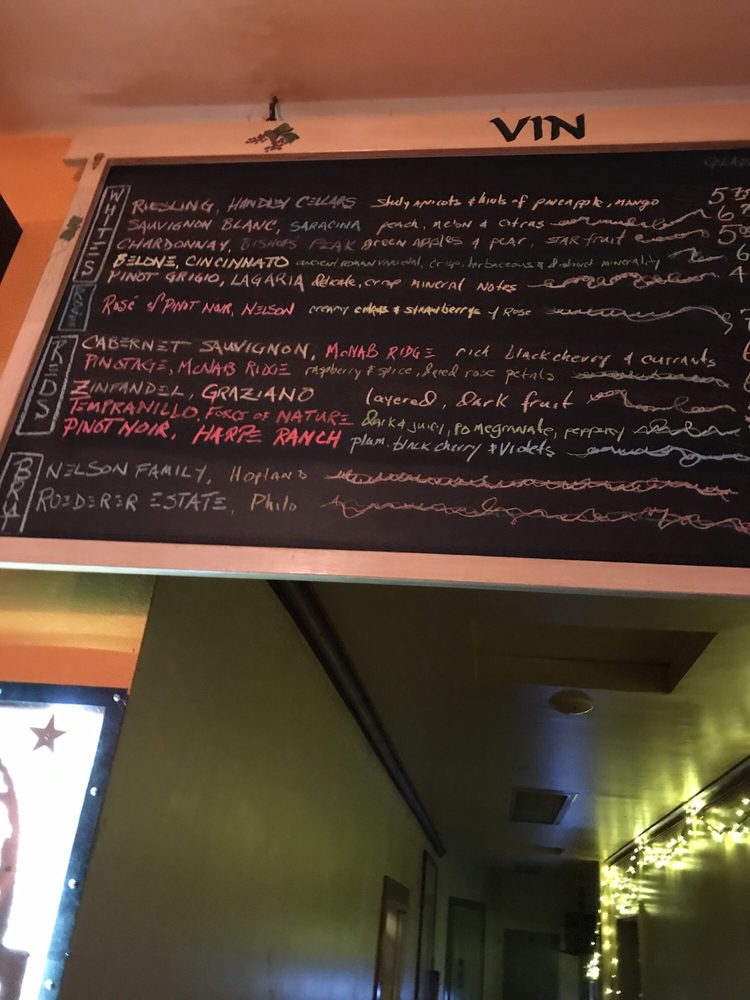 VIN
WHITES
RIESLING, HANDLEY CELLARS apricots & hints of pineapple, mango 5
SAUVIGNON BLANC, SARACINA peach, melon & citrus 6
CHARDONNAY, BISHOPS PEAK green apples & pear, star fruit 5
BELONE, CINCINNATO ancient roman varietal, crisp, herbaceous & distinct minerality 6
PINOT GRIGIO, LAGARIA delicate, crisp mineral notes
Rosé of PINOT NOIR, NELSON creamy citrus & strawberrys & Rose
REDS
CABERNET SAUVIGNON, McNAB RIDGE rich black cherry & currants
PINOTAGE, McNAB RIDGE raspberry & spice, dried rose petals
ZINFANDEL, GRAZIANO layered, dark fruit
TEMPRANILLO, FORCE OF NATURE dark & juicy, pomegranate, peppery
PINOT NOIR, HARPE RANCH plum, black cherry & violets
BRUT
NELSON FAMILY, Hopland
ROEDERER ESTATE, Philo